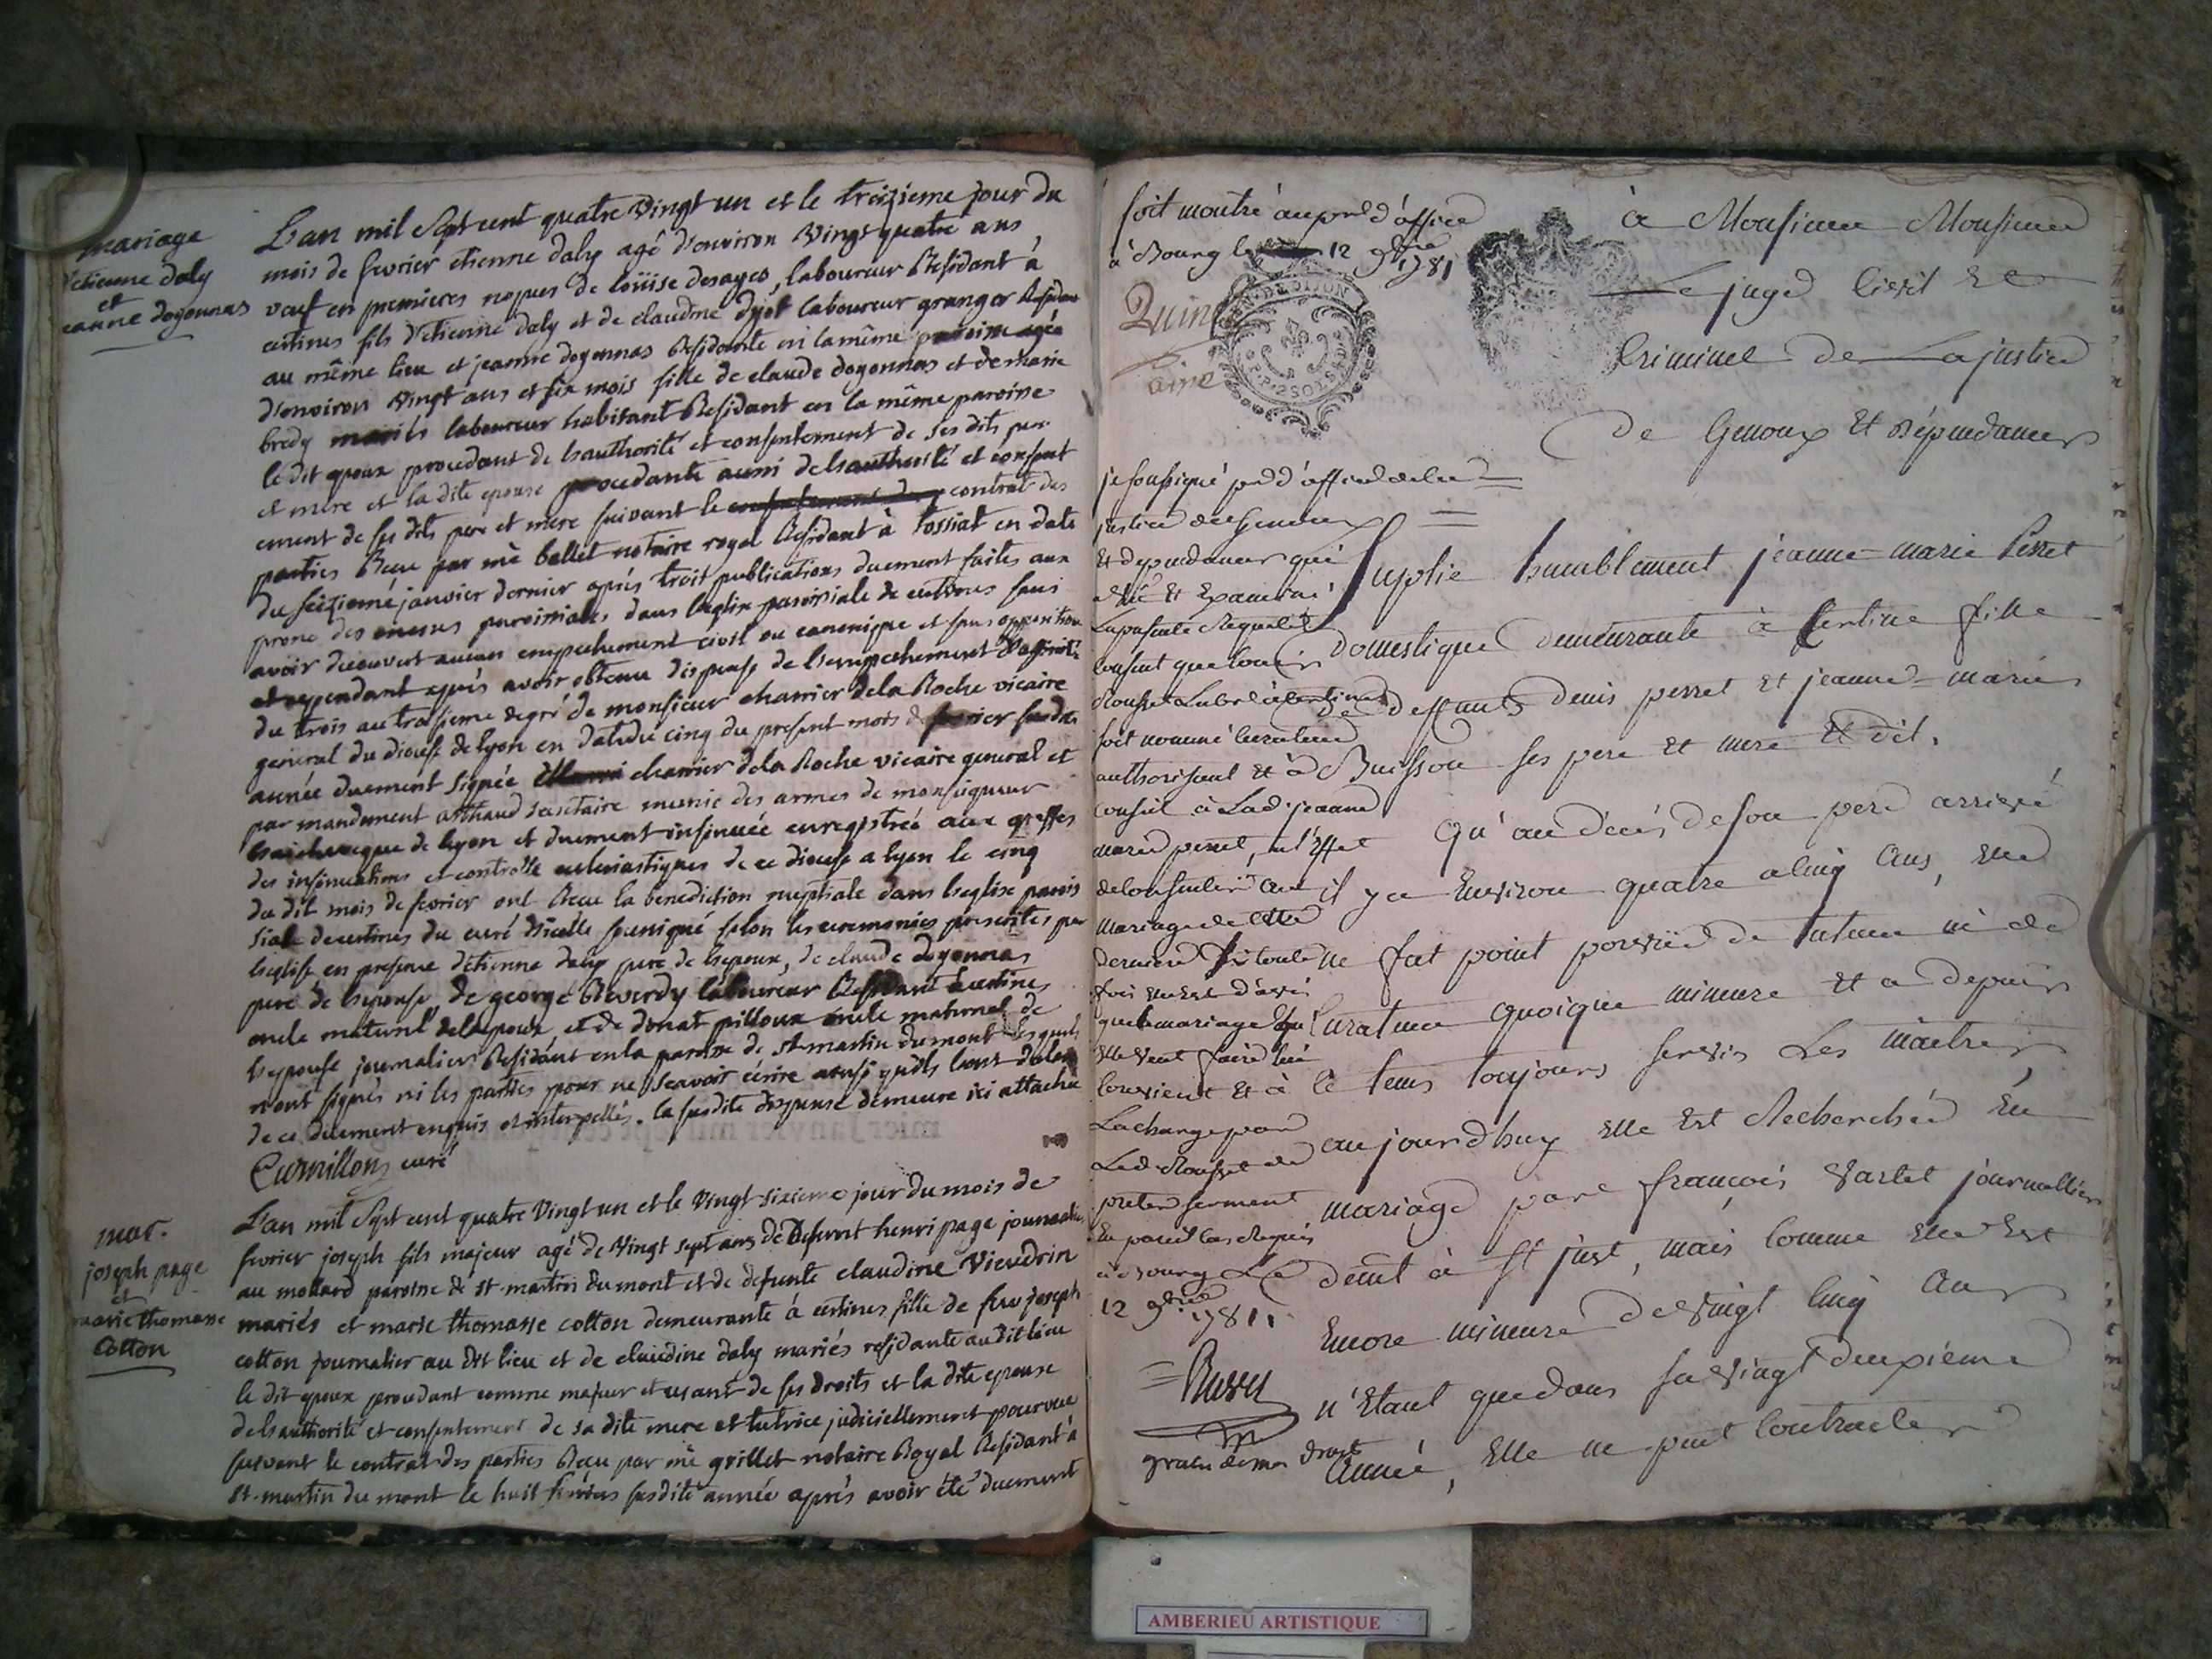 mariage
d'etienne daly
et
jeanne doyonnas
L'an mil Sept cent quatre Vingt un et le treizieme jour du
mois de fevrier etienne daly agé d'environ Vingt quatre ans
veuf en premieres nopces de loüise desayes, laboureur Residant à
certines fils d'etienne daly et de claudine dyot laboureur granger Residant
au même lieu et jeanne doyonnas Residante en la même paroisse agée
d'environ Vingt ans et six mois fille de claude doyonnas et de marie
bredy mariés laboureur habitant Residant en la même paroisse
le dit epoux procedant de l'authorité et consentement de ses dits pere
et mere et la dite epouse procedante aussi de l'authorité et consent
ement de ses dits pere et mere suivant le contrat des
parties Recu par me ballet notaire royal Residant à tossiat en date
du seizieme janvier dernier aprés trois publications duement faites aux
prone des messes paroissiales dans l'eglise paroissiale de certines sans
avoir decouvert aucun empechement civil ou canonique et sans opposition
et cependant aprés avoir obtenu dispense de l'empechement d'affinité
du trois au troisieme degré de monsieur charrier de la Roche vicaire
general du diocese de lyon en date du cinq du present mois de fevrier susdite
année duement signée charrier de la Roche vicaire general et
par mandement arthaud secretaire munie des armes de monseigneur
l'archeveque de lyon et duement insinuée enregistrée aux greffes
des insinuations et controlle ecclesiastiques de ce diocese a lyon le cinq
du dit mois de fevrier ont Recu la benediction nuptiale dans l'eglise parois
siale de certines du curé d'icelle soussigné selon les ceremonies prescrites par
l'eglise en presence d'etienne daly pere de l'epoux, de claude doyonnas
pere de l'epouse, de george Reverdy laboureur Residant à certines
oncle maternel de l'epoux et de donat pilloux oncle maternel de
l'epouse journalier Residant en la paroisse de st-martin du mont lesquels
n'ont signés ni les parties pour ne sçavoir écrire ainsi qu'ils l'ont declaré
de ce duement enquis et interpellés. la susdite dispense demeure ici attachée
Curnillon curé
mar.
joseph page
et
marie thomasse
Cotton
L'an mil Sept cent quatre Vingt un et le Vingt sixieme jour du mois de
fevrier joseph fils majeur agé de Vingt sept ans de Defunt henri page journalier
au mollard paroisse de st-martin du mont et de defunte claudine Vieudrin
mariés et marie thomasse cotton demeurante à certines fille de feu joseph
cotton journalier au dit lieu et de claudine daly mariés residante au dit lieu
le dit epoux procedant comme majeur et usant de ses droits et la dite epouse
de l'authorité et consentement de sa dite mere et tutrice judiciellement pourvue
suivant le contrat des parties Recu par me grillet notaire Royal Residant à
st-martin du mont le huit fevrier susdite année aprés avoir été duement
soit montré au pr d'office
à Bourg le 12 9bre 1781
à Monsieur Monsieur
Le juge Civil et
Criminel de La justice
de Genoux et Dépendances
je soussigné pr d'office de la
justice de Genoux
et dependances qui
a vu et Examiné
La presente Requete
consent que louis
Rousset Labr à certines
soit nommé curateur
authorisant et à
conseil à Lad. jeanne
marie perret, a l'effet
de consentir au
mariage de cette
derniere
que le mariage qu
elle veut faire lui
convient et à
La charge par
Led. Rousset de
preter serment
En pareil cas Requis
à Bourg Le
12 9bre 1781.
gratis de mes droits
Suplie humblement jeanne-marie Perret
domestique demeurante à Certine fille
de deffunts denis perret et jeanne-marie
Buisson ses pere et mere et dit.
Qu'au décés de son pere arrivé
il y a Environ quatre a cinq ans, elle
ne fut point pourvüe de tuteur ni de
curateur quoique mineure et a depuis
ce tems toujours servis Les maitres,
aujourdhuy elle Est Recherchée En
mariage par françois Varlet journallier
demt à St just, mais comme elle Est
Encore mineure de vingt cinq ans
n'Etant que dans sa vingt deuxieme
année, elle ne peut contracter
AMBERIEU ARTISTIQUE